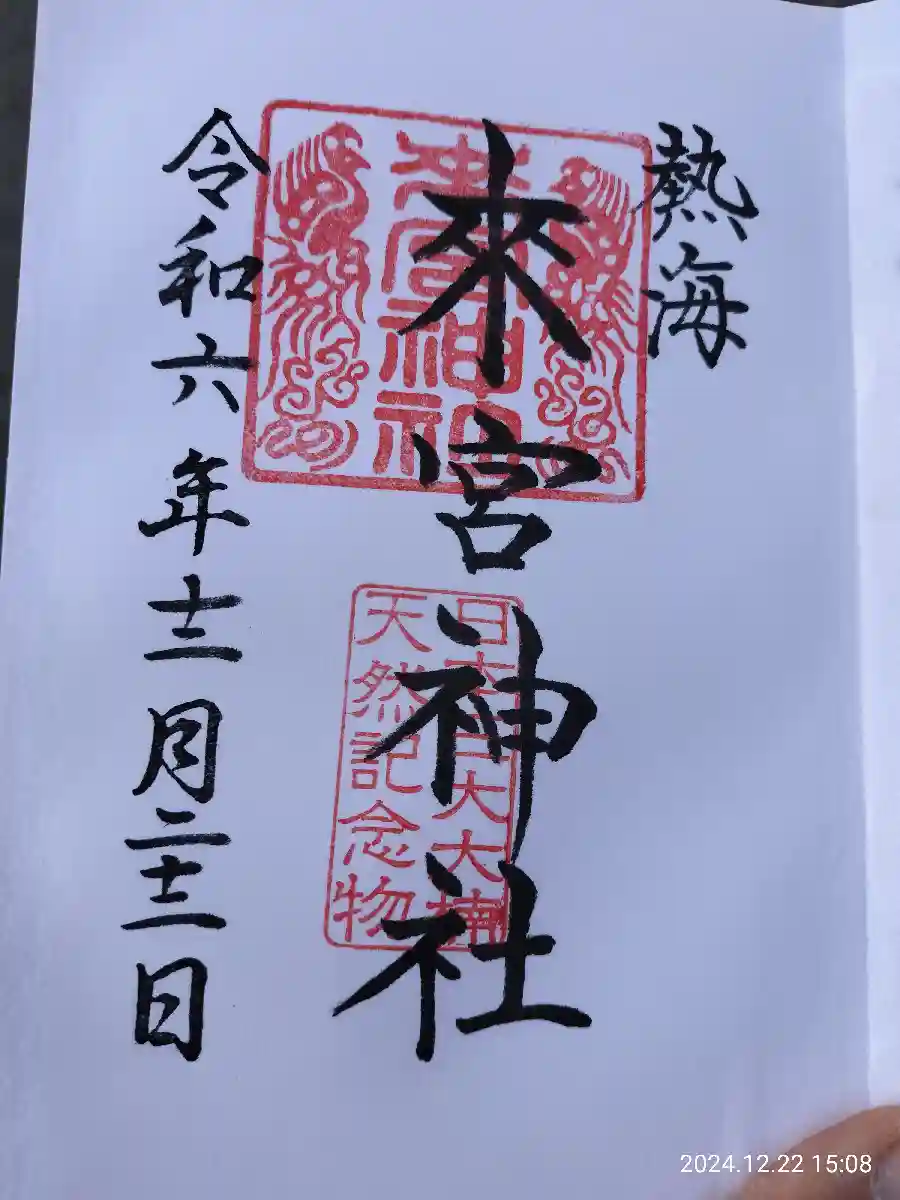 熱海
來宮神社
令和六年十二月二十二日
來宮神社
日本巨大大楠
天然記念物
2024.12.22 15:08